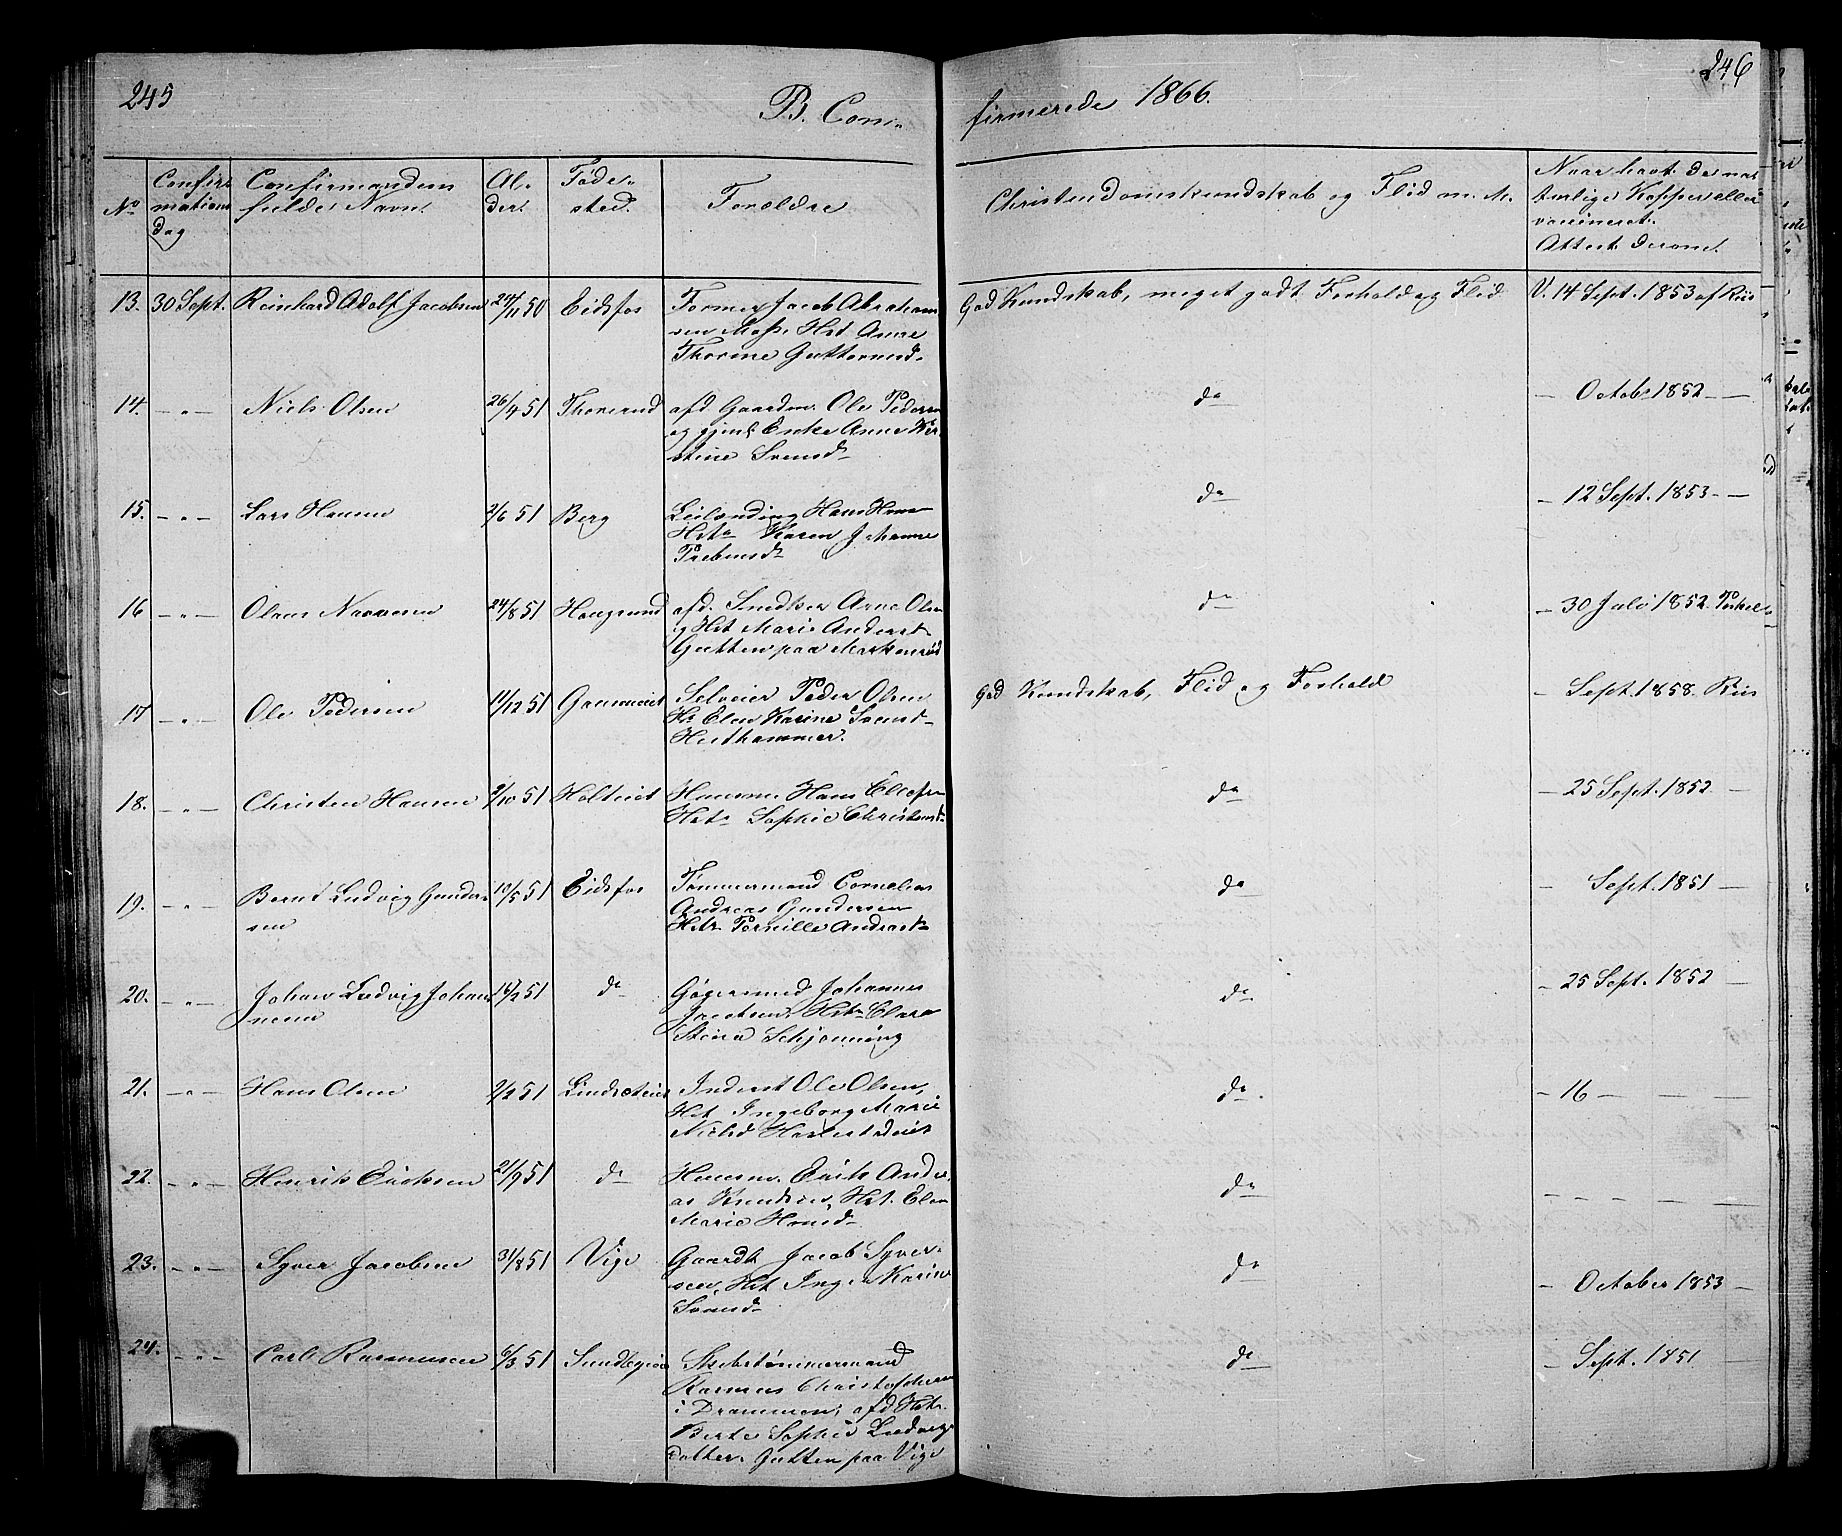 245
B. Con-
firmerede 1866.
246
No
Confir
mations
dag
Confirmandens
fulde Navn.
Al-
der.
Føde-
sted.
Forældre
Christendomskundskab og Flid m. M.
Naar havt de na
turlige Kopper eller
vaccineret.
Attest derom.
13. 30 Sept. Reinhard Adolf Jacobsen 24/11 50 Eidsfos
Former Jacob Abraham
sen Moss. Hst Anne
Thorine Guttormsd.
God Kundskab, meget godt Forhold og Flid
V. 14 Sept. 1853 af Riis
14. - " - Niels Olsen 26/4 51 Thorerud
afd Gaardm. Ole Pedersen
og gjenl Enke Anne Kir
stine Svensd
do
- October 1852 -
15. - " - Lars Hansen 2/6 51 Berg
Leilænding Hans Hans
Hst Karen Johanne
Prebensd
do
- 12 Sept. 1853 -
16 - " - Olaus Narvesen 24/8 51 Haugsund
afd. Snedker Arne Olsen
og Hst Marie Andersd
Gutten paa Markerud
do
- 30 Juli 1852
17 - " - Ole Pedersen 11/12 51
Selveier Peder Olsen
Hs Elen Karine Svensd
Hesthammer.
God Kundskab, Flid og Forhold
- Sept. 1858. Riis
18. - " - Christen Hansen 9/10 51 Holteiet
Huusm. Hans Ellefs
Hst Sophie Christensd
do
- 25 Sept. 1852 -
19. - " - Bernt Ludvig Gunder-
sen
10/5 51 Eidsfos
Tømmermand Cornelius
Andreas Gundersen
Hst Pernille Andreasd
do
- Sept. 1851 -
20. - " - Johan Ludvig Johan
nesen
16/2 51 do
Johannes
Jacobsen. Hst Clara
Stina Schjønning
do.
- 25 Sept. 1852 -
21. - " - Hans Olsen 2/2 51
Inderst Ole Olsen,
Hst Ingeborg Marie
Nielsd
do.
- 16 - - - -
22. - " - Henrik Eriksen 21/9 51 do
Huusm. Erik Andre
as Knudsen, Hst. Elen
Marie Hansd
do
- - - - - -
23. - " - Syver Jacobsen 31/8 51 Vige
Gaardb. Jacob Syver-
sen, Hst Inger Karine
Svensd
do
- October 1853 -
24. - " - Carl Rasmussen 6/3 51
Skibstømmermand
Rasmus Christophersen
i Drammen, afd Hst.
Berte Sophie Ludvigs
datter. Gutten paa Vige
do
- Sept. 1851 -